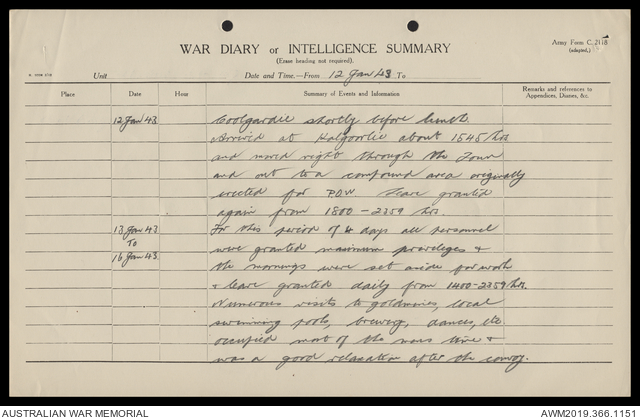 Army Form C. 2118
(adapted.)
WAR DIARY or INTELLIGENCE SUMMARY
(Erase heading not required).
Unit
Date and Time.—From 12 Jan 43 To
Place Date Hour Summary of Events and Information Remarks and references to
Appendices, Diaries, &c.
12 Jan 43 Coolgardie shortly before lunch.
Arrived at Kalgoorlie about 1545 hrs
and moved right through the Town
and out to a compound area originally
erected for P.O.W. Leave granted
again from 1800 - 2359 hrs.
13 Jan 43 For this period of 4 days all personnel
To were granted maximum priveleges &
16 Jan 43 the mornings were set aside for work
& leave granted daily from 1400-2359 hrs.
Numerous visits to goldmines, local
swimming pools, brewery, dances, etc
occupied most of the mens time &
was a good relaxation after the convoy.
AUSTRALIAN WAR MEMORIAL
AWM2019.366.1151